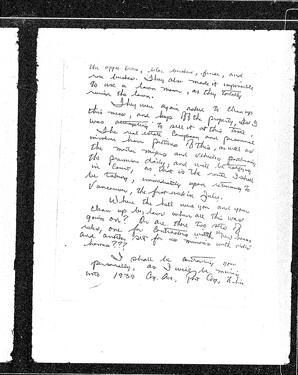 the apple trees, lilac bushes, fence, and
rose bushes. They also made it impossible
to use a lawn mower, as they totally
ruined the lawn.
They were again asked to clean up
this mess, and keep off the property, as I
was attempting to sell it at this time.
The real estate Company and
have pictures of this, as well as
the motor and vehicles
the premises daily, and will be
in Court, as that is the route I shall
be taking, immediately upon returning to
Vancouver, the first week in July.
Where the hell were you and your
clean up by laws when all this was
going on? Or are there two sets of
rules, one for Contractors with
and another set for us
homes???
I shall be you
personally, as I will be moving
into 1930